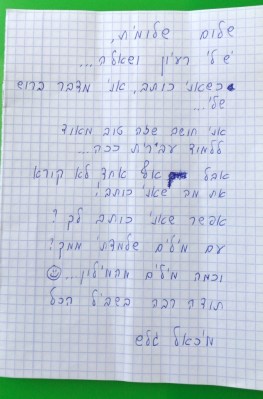 שלום שלומית,
יש לי רעיון ושאלה...
כשאני כותב, אני מדבר ברוש
שלי...
אני חושב שזה טוב מאוד
ללמוד עברית ככה...
אבל אף אחד לא קורא
את מה שאני כותב!
אפשר שאני כותב לך?
עם מילים שלמדתי ממך!
וכמה מילים מהמילון...
תודה רבה בשביל הכל
מיכאל